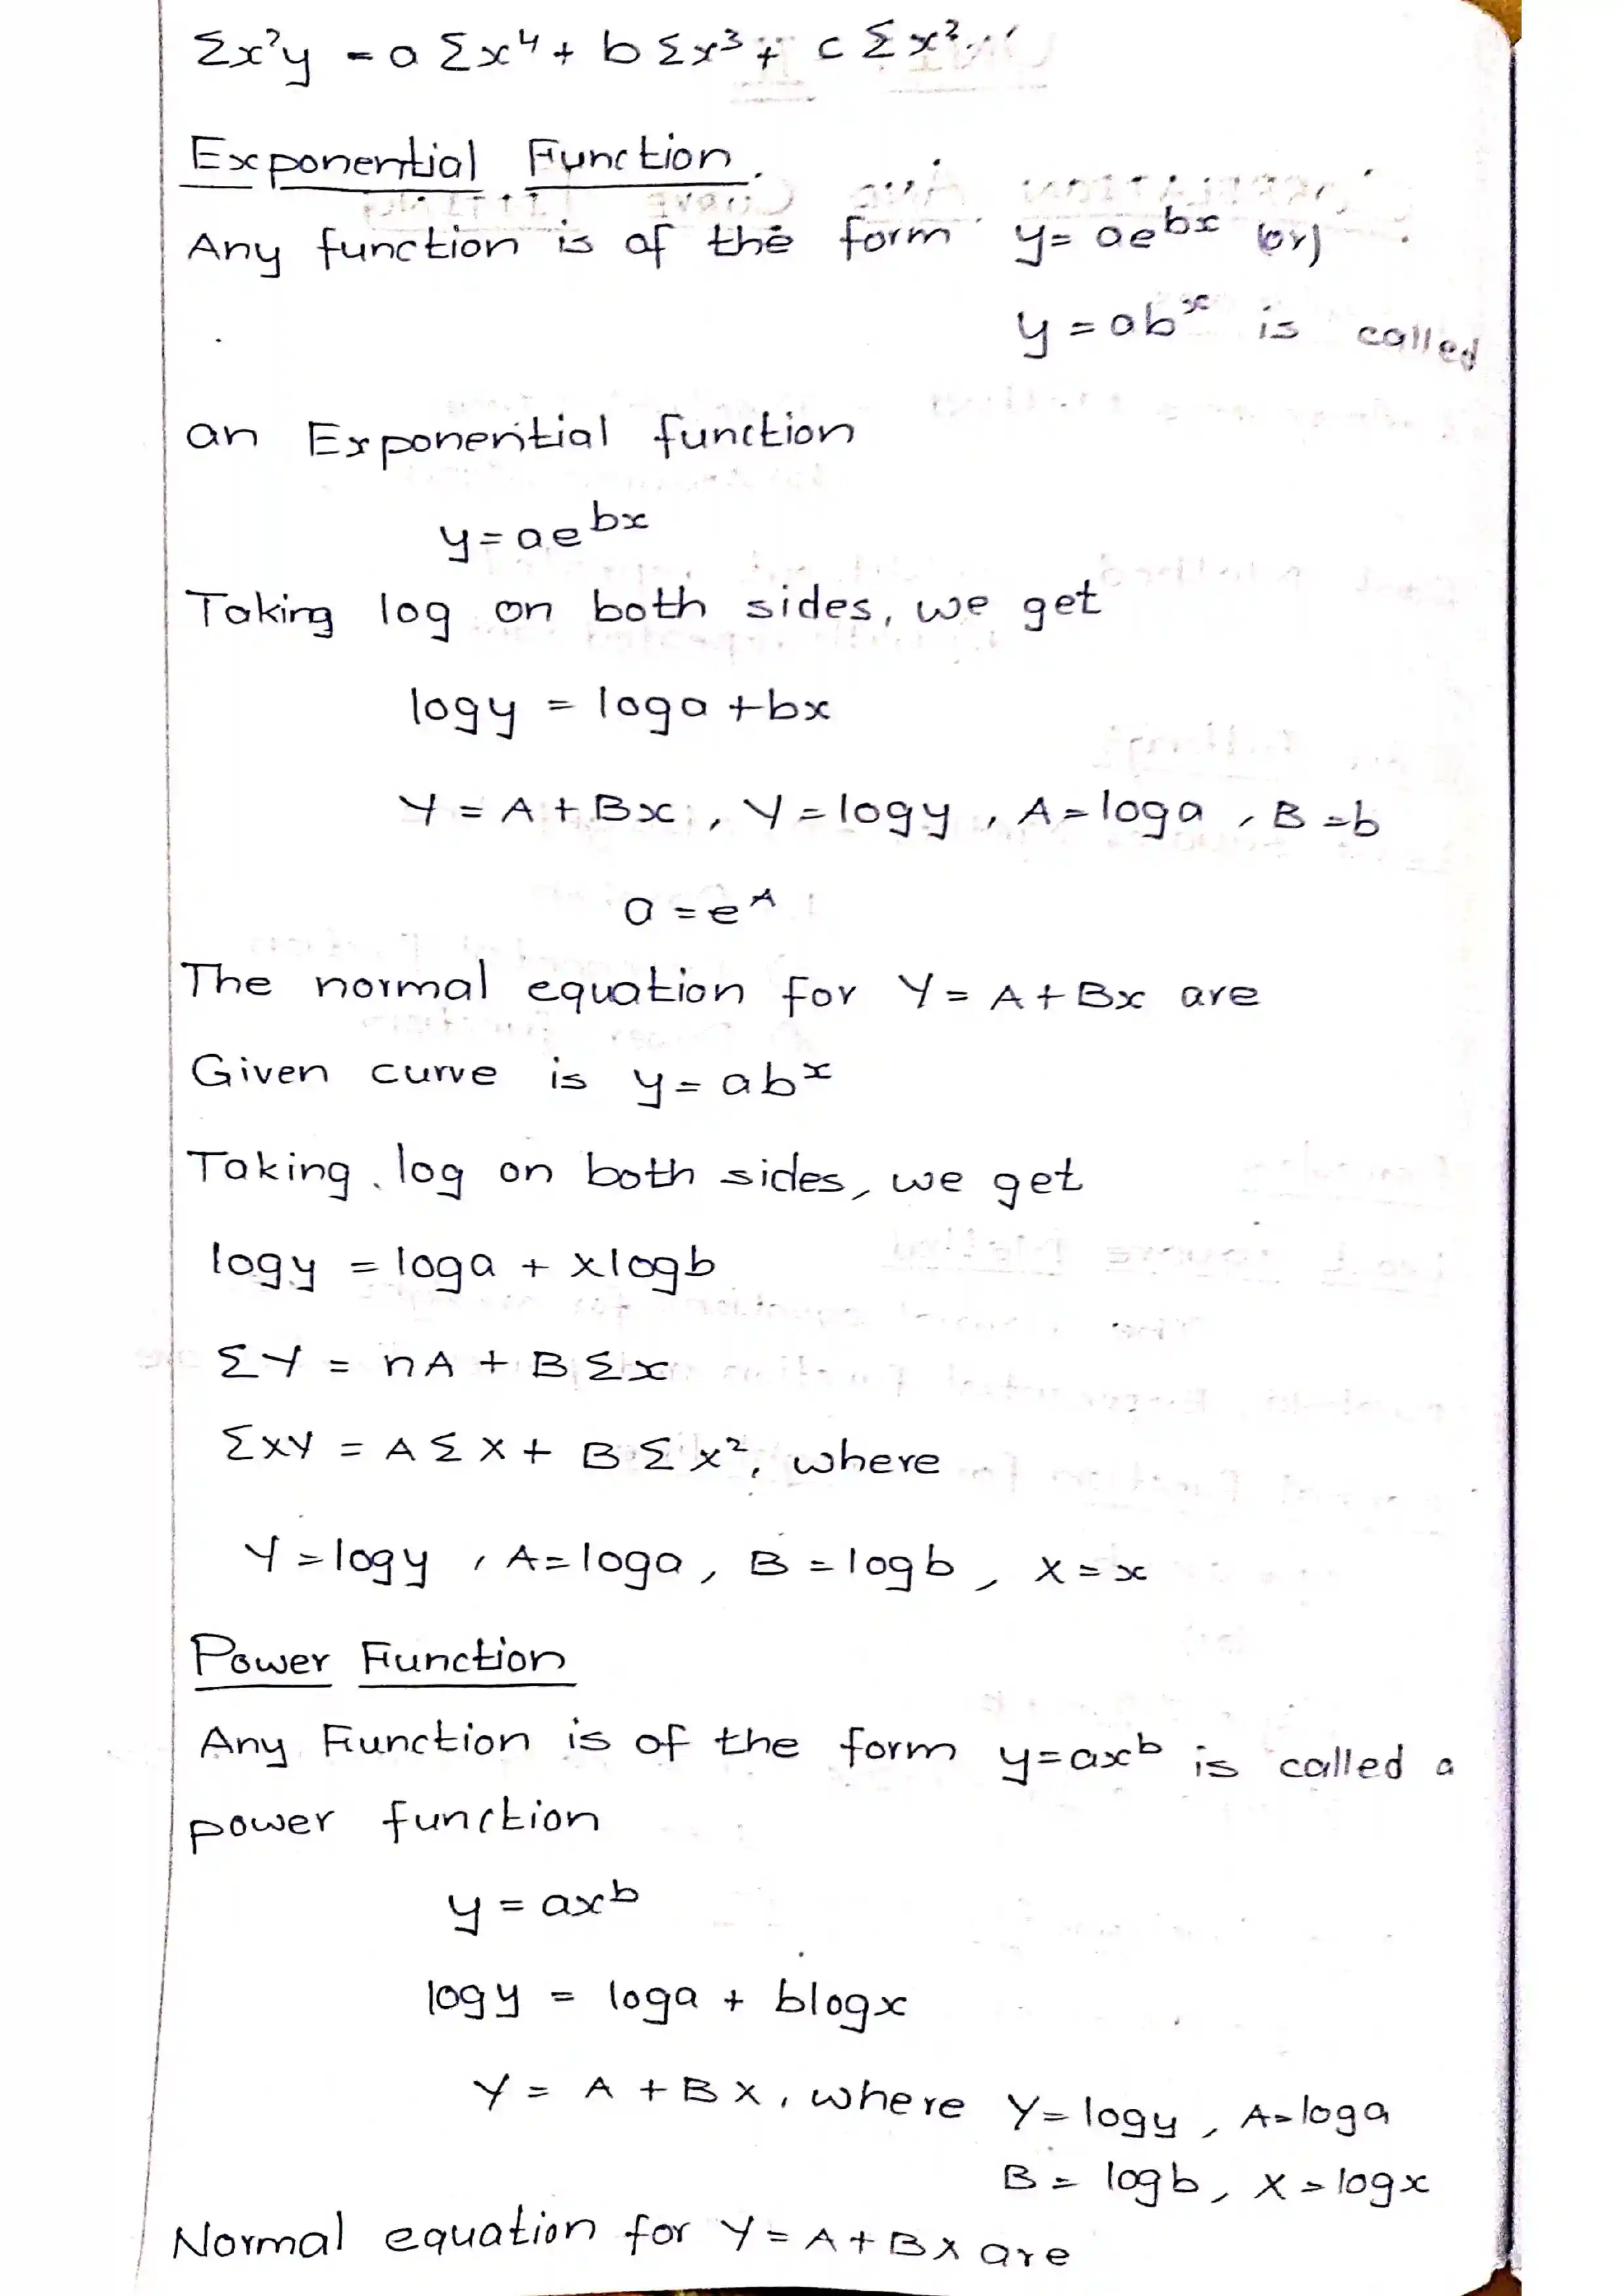 Σx²y = a Σx⁴ + b Σx³ + c Σx²
Exponential Function.
Any function is of the form y = ae^bx (or)
y = ab^x is called
an Exponential function
y = ae^bx
Taking log on both sides, we get
logy = loga + bx
Y = A + Bx, Y = logy, A = loga, B = b
a = e^A
The normal equation for Y = A + Bx are
Given curve is y = ab^x
Taking log on both sides, we get
logy = loga + xlogb
ΣY = nA + BΣx
ΣXY = AΣX + BΣx², where
Y = logy, A = loga, B = logb, X = x
Power Function
Any Function is of the form y = ax^b is called a
power function
y = ax^b
logy = loga + blogx
Y = A + BX, where Y = logy, A = loga
B = logb, X = logx
Normal equation for Y = A + BX are